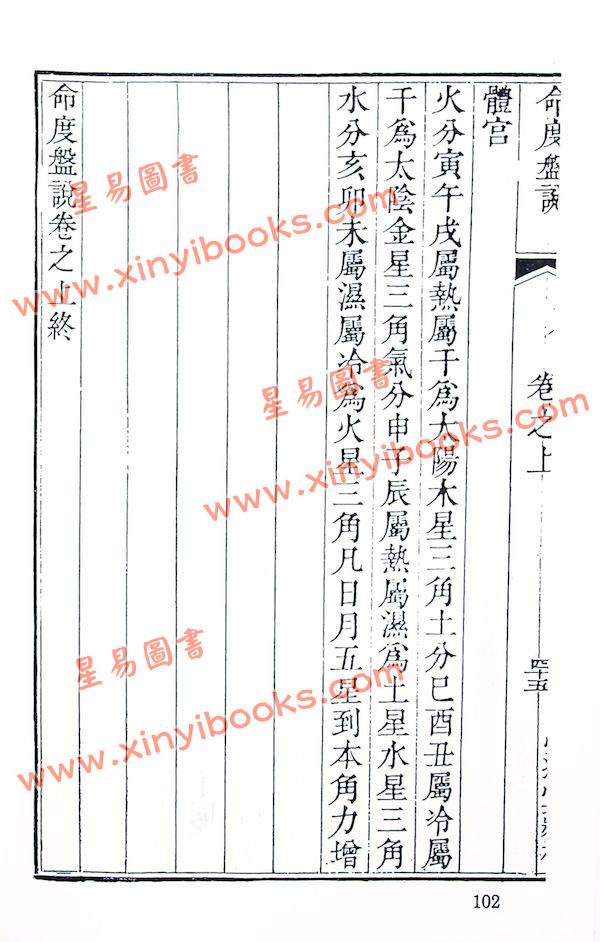 命度盤說
卷之上
四十五
體宮
火分寅午戌屬熱屬干爲太陽木星三角土分巳酉丑屬冷屬
干爲太陰金星三角氣分申子辰屬熱屬濕爲土星水星三角
水分亥卯未屬濕屬冷爲火星三角凡日月五星到本角力增
命度盤說卷之上終
星易圖書
www.xinyibooks.com
星易圖書
www.xinyibooks.com
星易圖書
www.xinyibooks.com
102